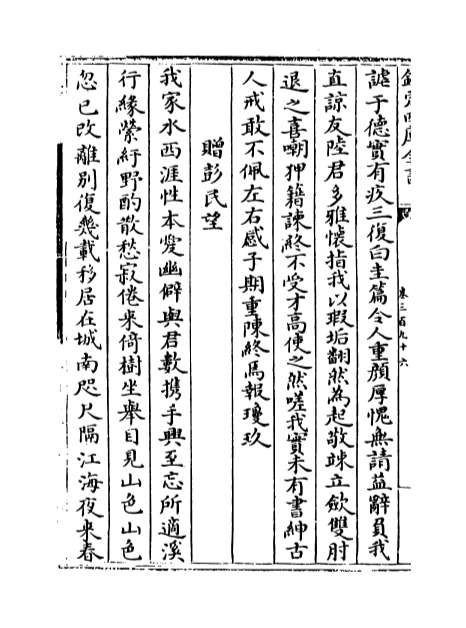 欽定四庫全書
卷三百九十六
謔于德實有疚三復白圭篇令人重顔厚愧無請益辭員我
直諒友陸君多雅懐指我以瑕垢翻然為起敬竦立斂雙肘
退之喜嘲狎籍諫終不受才高使之然嗟我實未有書紳古
人戒敢不佩左右感子期重陳終焉報瓊玖
贈彭民望
我家水西涯性本愛幽僻與君數携手興至忘所適溪
行緣縈紆野酌散愁寂倦来倚樹坐舉目見山色山色
忽已改離别復幾載移居在城南咫尺隔江海夜来春